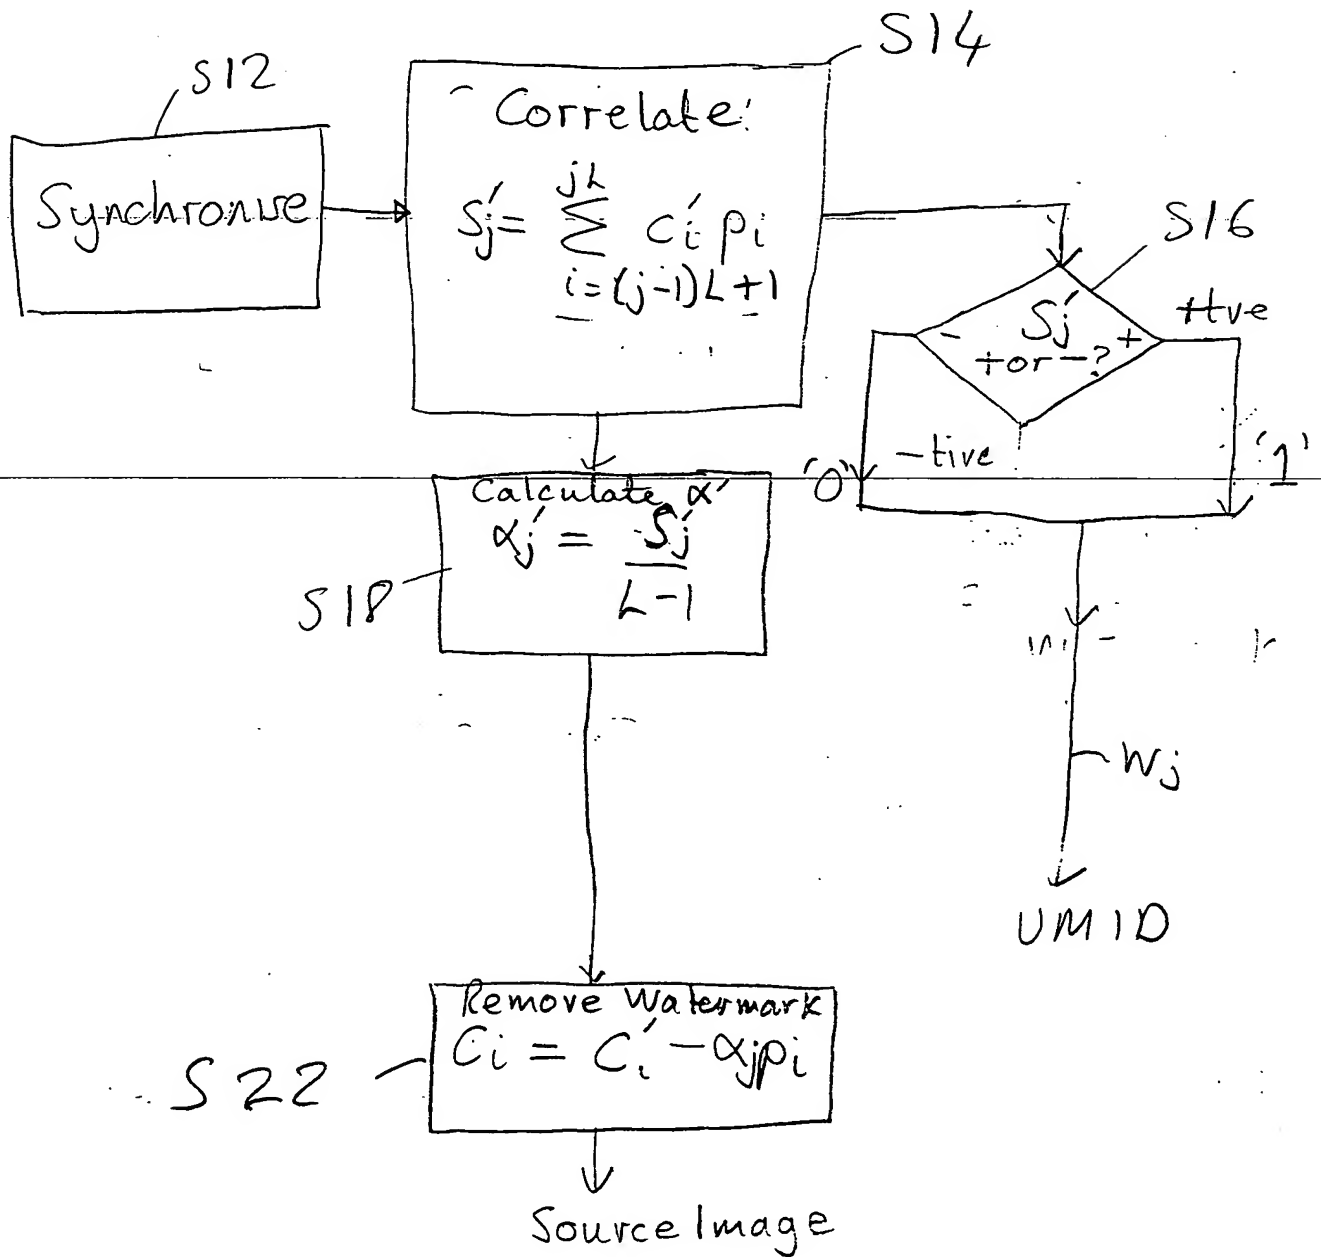 S12
Synchronise
S14
Correlate:
Sj' = Σ ci' pi
jL
i=(j-1)L+1
S16
Sj'
+ or - ?
-
+
+tve
-tive
'0'
'1'
Calculate α'
αj' = Sj' / L-1
S18
Wj
UMID
Remove Watermark
Ci = Ci' - αjpi
S22
Source Image